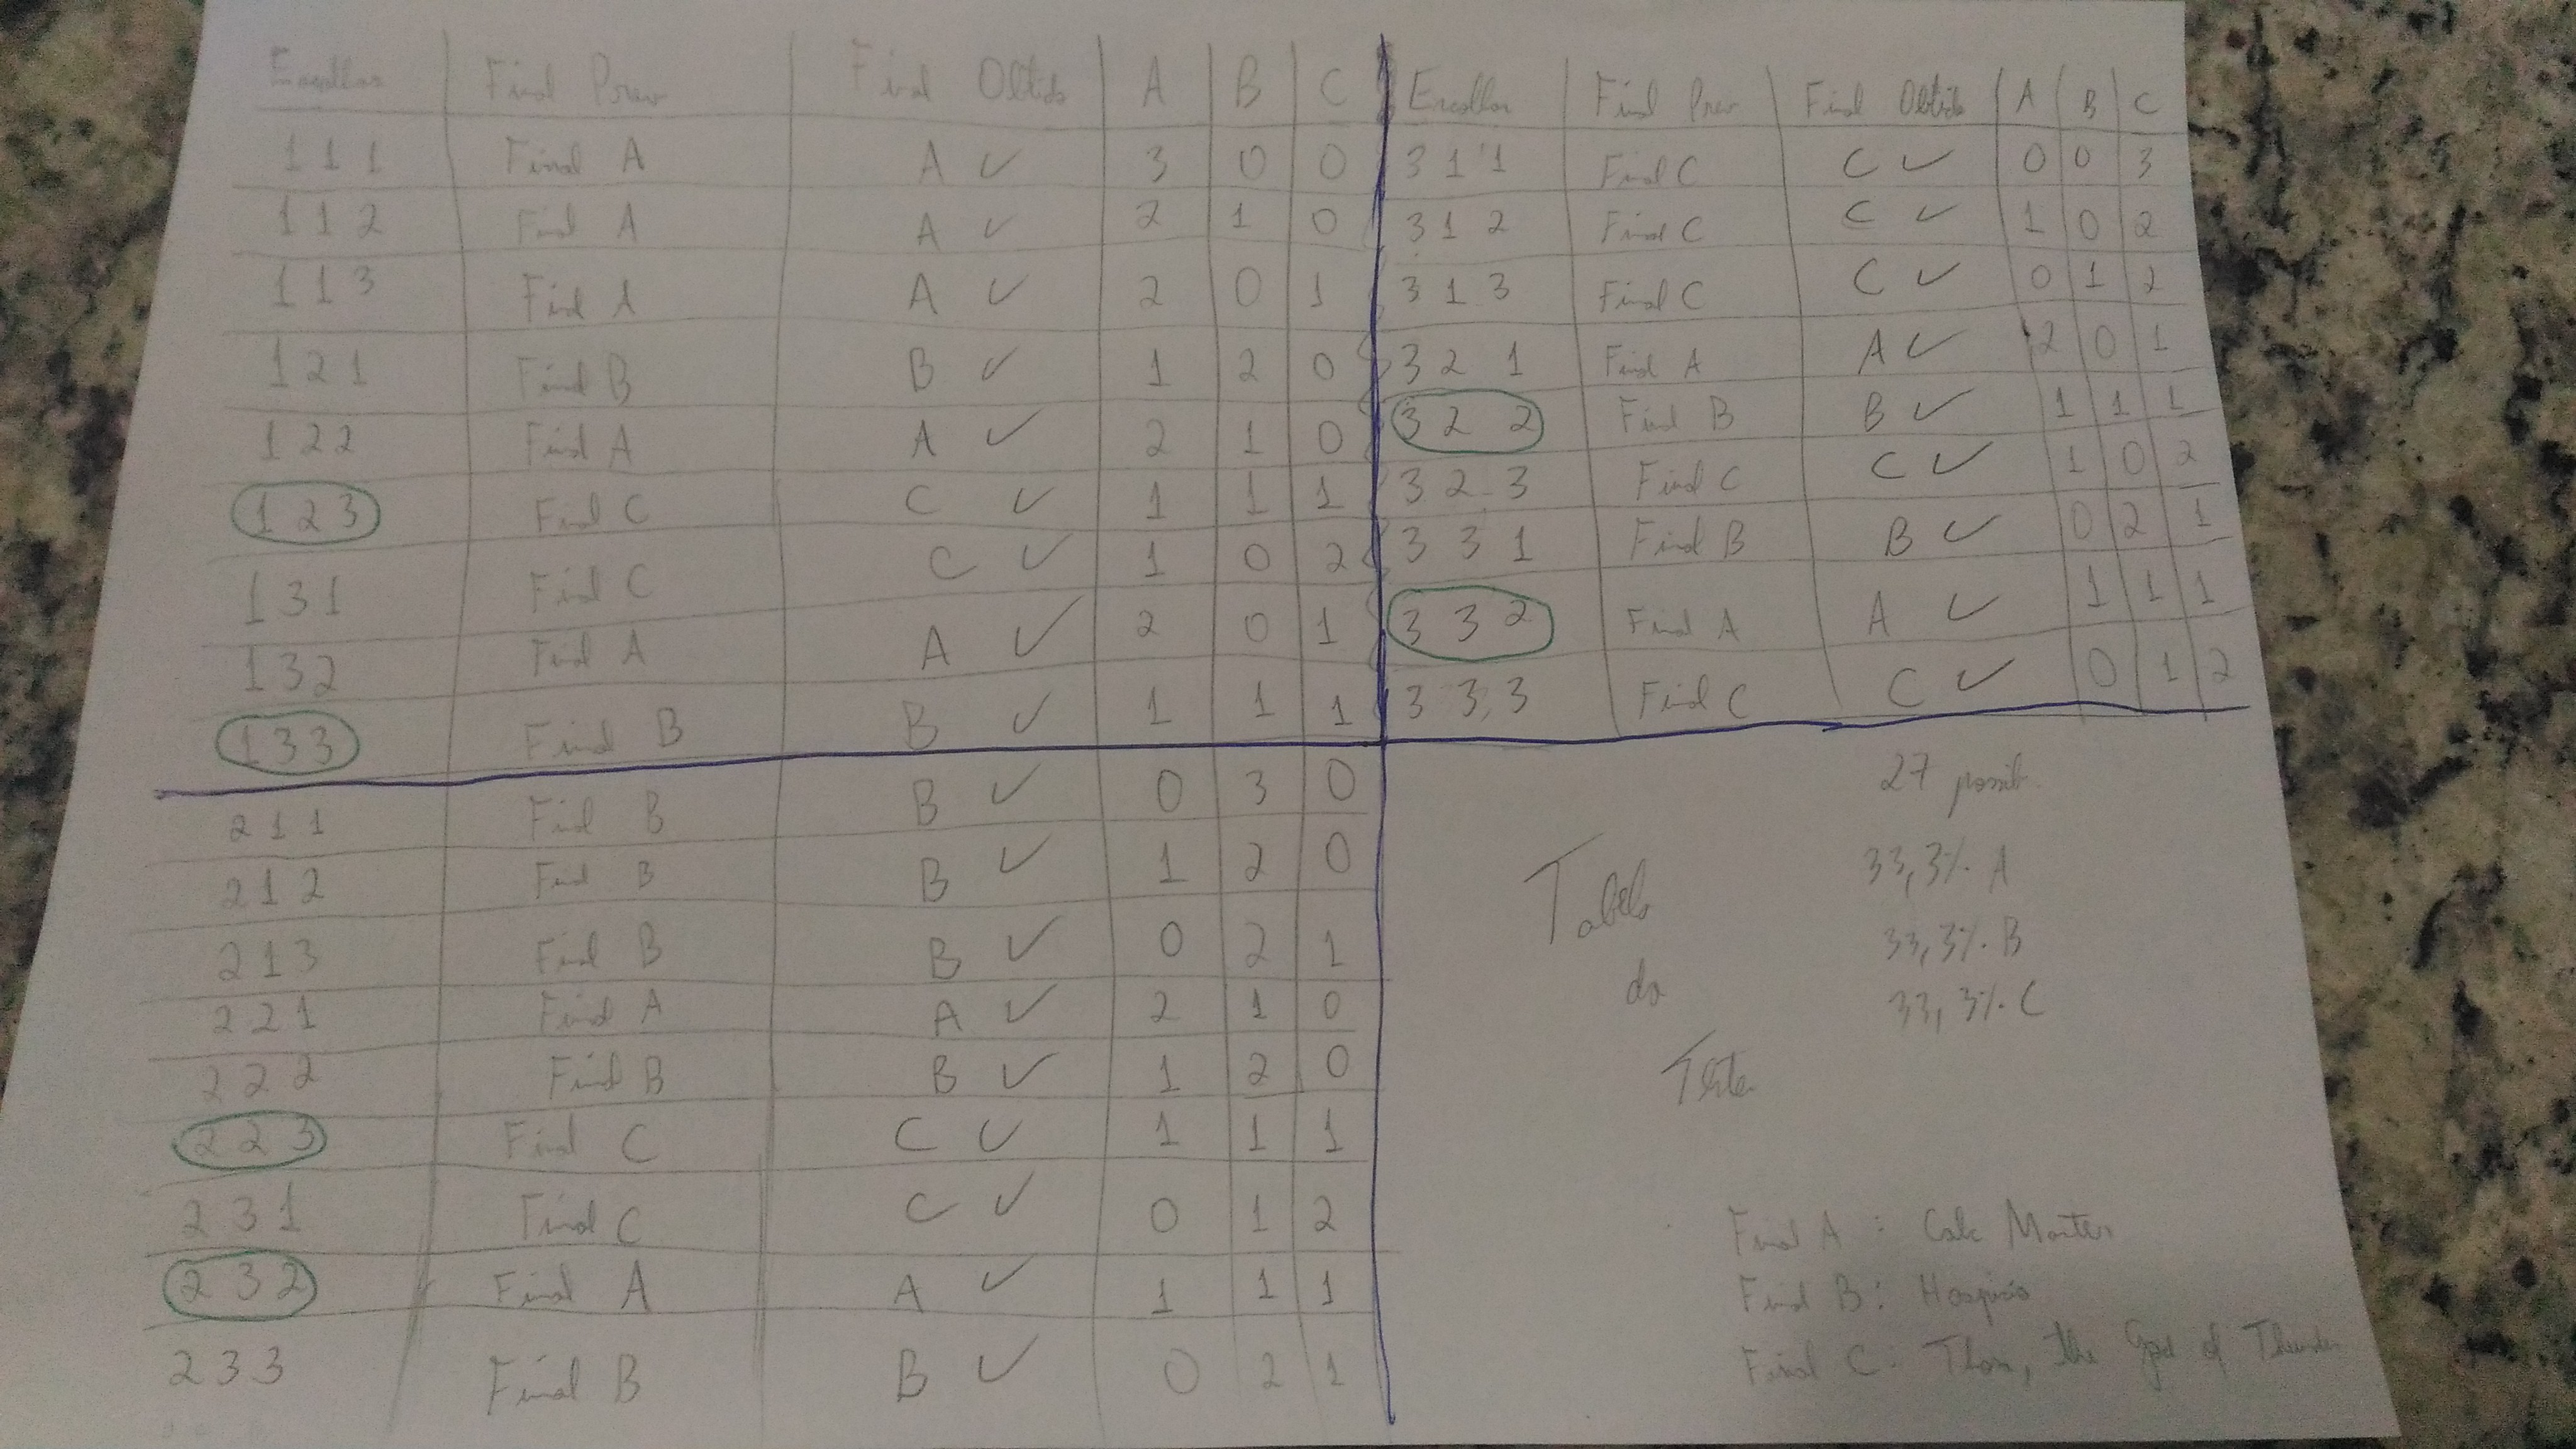 Escolhas Final Prev Final Obtido A B C
1 1 1 Final A A ✓ 3 0 0
1 1 2 Final A A ✓ 2 1 0
1 1 3 Final A A ✓ 2 0 1
1 2 1 Final B B ✓ 1 2 0
1 2 2 Final A A ✓ 2 1 0
1 2 3 Final C C ✓ 1 1 1
1 3 1 Final C C ✓ 1 0 2
1 3 2 Final A A ✓ 2 0 1
1 3 3 Final B B ✓ 1 1 1
2 1 1 Final B B ✓ 0 3 0
2 1 2 Final B B ✓ 1 2 0
2 1 3 Final B B ✓ 0 2 1
2 2 1 Final A A ✓ 2 1 0
2 2 2 Final B B ✓ 1 2 0
2 2 3 Final C C ✓ 1 1 1
2 3 1 Final C C ✓ 0 1 2
2 3 2 Final A A ✓ 1 1 1
2 3 3 Final B B ✓ 0 2 1
Escolhas Final Prev Final Obtido A B C
3 1 1 Final C C ✓ 0 0 3
3 1 2 Final C C ✓ 1 0 2
3 1 3 Final C C ✓ 0 1 2
3 2 1 Final A A ✓ 2 0 1
3 2 2 Final B B ✓ 1 1 1
3 2 3 Final C C ✓ 1 0 2
3 3 1 Final B B ✓ 0 2 1
3 3 2 Final A A ✓ 1 1 1
3 3 3 Final C C ✓ 0 1 2
27 possib.
33,3% A
33,3% B
33,3% C
Tabela
de
Testes
Final A: Calc Master
Final B: Hospício
Final C: Thor, the God of Thunder